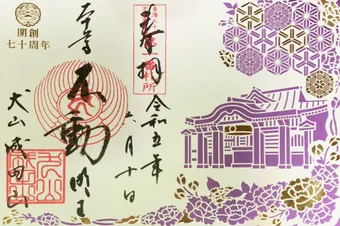 奉拝
令和五年
六月十日
本尊
不動明王
犬山成田山
開創
七十周年